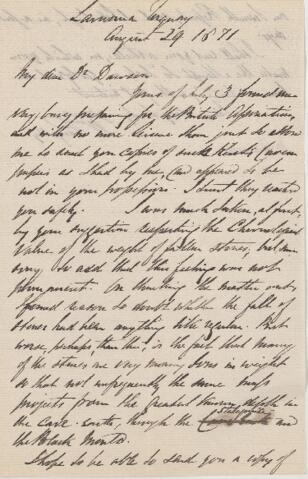 Lamorna Torquay
August 29 1871
My dear Dr Dawson
Yours of July 3 found me
very busy preparing for the British Association,
and with no more leisure than just to allow
me to send you copies of such Kent's Cavern
papers as I had by me, and appeared to be
not in your possession. I trust they reached
you safely. I was much taken, at first,
by your suggestion respecting the Chronological
value of the weight of fallen stones, but am
sorry to add that this feeling was not
permanent. On thinking the matter out,
I found reason to doubt whether the fall of
stones had been anything like regular. But
worse, perhaps, than this, is the fact that many
of the stones are very many tons in weight
so that not unfrequently the same mass
projects from the greatest known depth in
the Cave-earth, through the Stalagmite and
the Black Mould.
I hope to be able to send you a copy of